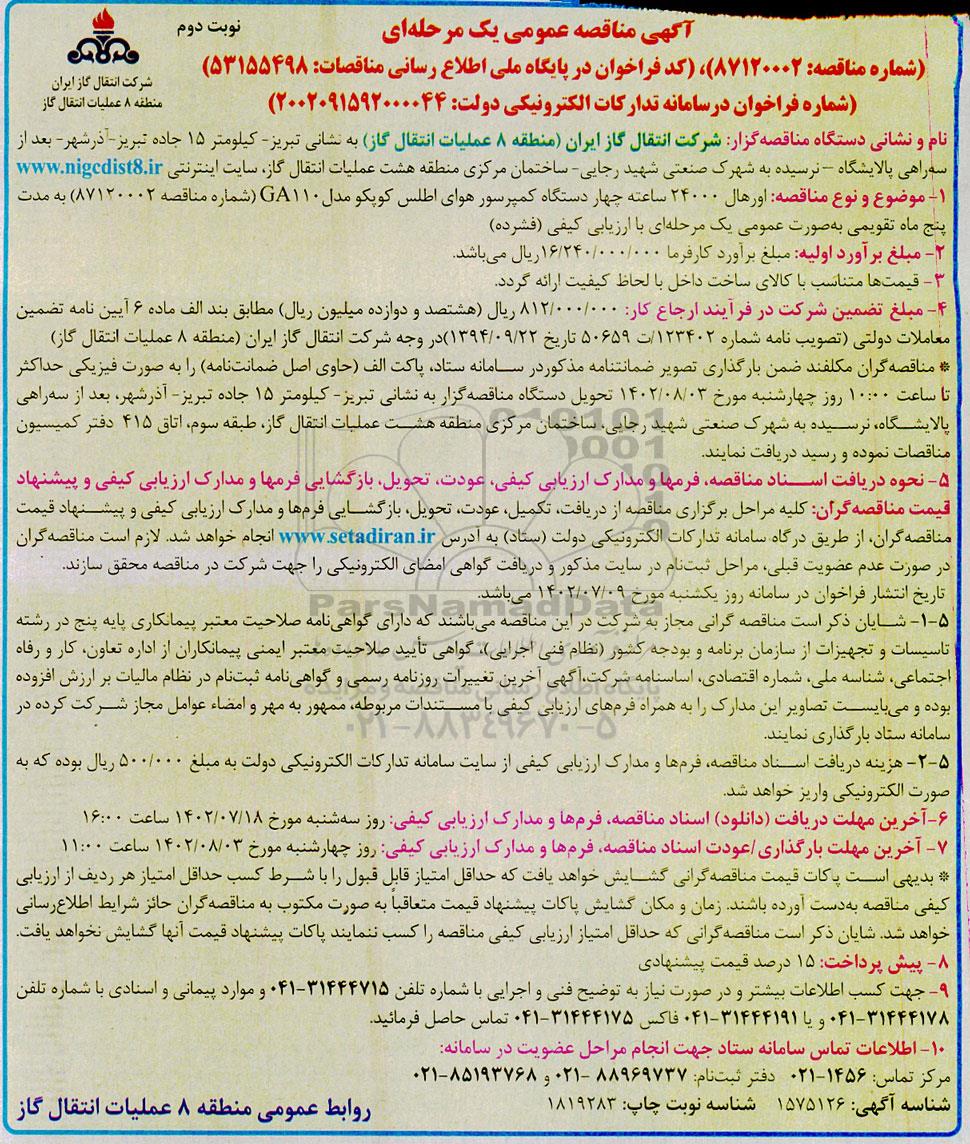 آگهی مناقصه عمومی یک مرحله‌ای
نوبت دوم
(شماره مناقصه: ۸۷۱۲۰۰۰۲)، (کد فراخوان در پایگاه ملی اطلاع رسانی مناقصات: ۵۳۱۵۵۴۹۸)
(شماره فراخوان درسامانه تدارکات الکترونیکی دولت: ۲۰۰۲۰۹۱۵۹۲۰۰۰۰۴۴)
شرکت انتقال گاز ایران
منطقه ۸ عملیات انتقال گاز
نام و نشانی دستگاه مناقصه‌گزار: شرکت انتقال گاز ایران (منطقه ۸ عملیات انتقال گاز) به نشانی تبریز- کیلومتر ۱۵ جاده تبریز-آذرشهر- بعد از
سه‌راهی پالایشگاه –نرسیده به شهرک صنعتی شهید رجایی- ساختمان مرکزی منطقه هشت عملیات انتقال گاز، سایت اینترنتی www.nigcdist8.ir
۱- موضوع و نوع مناقصه: اورهال ۲۴۰۰۰ ساعته چهار دستگاه کمپرسور هوای اطلس کوپکو مدل GA۱۱۰ (شماره مناقصه ۸۷۱۲۰۰۰۲) به مدت
پنج ماه تقویمی به‌صورت عمومی یک مرحله‌ای با ارزیابی کیفی (فشرده)
۲- مبلغ برآورد اولیه: مبلغ برآورد کارفرما ۱۶/۲۴۰/۰۰۰/۰۰۰ریال می‌باشد.
۳- قیمت‌ها متناسب با کالای ساخت داخل با لحاظ کیفیت ارائه گردد.
۴- مبلغ تضمین شرکت در فرآیند ارجاع کار: ۸۱۲/۰۰۰/۰۰۰ ریال (هشتصد و دوازده میلیون ریال) مطابق بند الف ماده ۶ آیین نامه تضمین
معاملات دولتی (تصویب نامه شماره ۱۲۳۴۰۲/ت ۵۰۶۵۹ تاریخ ۱۳۹۴/۰۹/۲۲)در وجه شرکت انتقال گاز ایران (منطقه ۸ عملیات انتقال گاز)
* مناقصه‌گران مکلفند ضمن بارگذاری تصویر ضمانتنامه مذکوردر سـامانه ستاد، پاکت الف (حاوی اصل ضمانت‌نامه) را به صورت فیزیکی حداکثر
تا ساعت ۱۰:۰۰ روز چهارشنبه مورخ ۱۴۰۲/۰۸/۰۳ تحویل دستگاه مناقصه‌گزار به نشانی تبریز- کیلومتر ۱۵ جاده تبریز- آذرشهر، بعد از سه‌راهی
پالایشگاه، نرسیده به شهرک صنعتی شهید رجایی، ساختمان مرکزی منطقه هشت عملیات انتقال گاز، طبقه سوم، اتاق ۴۱۵ دفتر کمیسیون
مناقصات نموده و رسید دریافت نمایند.
۵- نحوه دریافت اسناد مناقصه، فرمها و مدارک ارزیابی کیفی، عودت، تحویل، بازگشایی فرمها و مدارک ارزیابی کیفی و پیشنهاد
قیمت مناقصه‌گران: کلیه مراحل برگزاری مناقصه از دریافت، تکمیل، عودت، تحویل، بازگشایی فرم‌ها و مدارک ارزیابی کیفی و پیشنهاد قیمت
مناقصه‌گران، از طریق درگاه سامانه تدارکات الکترونیکی دولت (ستاد) به آدرس www.setadiran.ir انجام خواهد شد. لازم است مناقصه‌گران
در صورت عدم عضویت قبلی، مراحل ثبت‌نام در سایت مذکور و دریافت گواهی امضای الکترونیکی را جهت شرکت در مناقصه محقق سازند.
تاریخ انتشار فراخوان در سامانه روز یکشنبه مورخ ۱۴۰۲/۰۷/۰۹ می‌باشد.
ParsNamadData
۵-۱- شایان ذکر است مناقصه گرانی مجاز به شرکت در این مناقصه می‌باشند که دارای گواهی‌نامه صلاحیت معتبر پیمانکاری پایه پنج در رشته
تاسیسات و تجهیزات از سازمان برنامه و بودجه کشور (نظام فنی اجرایی)، گواهی تأیید صلاحیت معتبر ایمنی پیمانکاران از اداره تعاون، کار و رفاه
اجتماعی، شناسه ملی، شماره اقتصادی، اساسنامه شرکت،آگهی آخرین تغییرات روزنامه رسمی و گواهی‌نامه ثبت‌نام در نظام مالیات بر ارزش افزوده
بوده و می‌بایست تصاویر این مدارک را به همراه فرم‌های ارزیابی کیفی با مستندات مربوطه، ممهور به مهر و امضاء عوامل مجاز شرکت کرده در
سامانه ستاد بارگذاری نمایند.
۰۲۱-۸۸۳۴۹۶۷۰-۵
۵-۲- هزینه دریافت اسناد مناقصه، فرم‌ها و مدارک ارزیابی کیفی از سایت سامانه تدارکات الکترونیکی دولت به مبلغ ۵۰۰/۰۰۰ ریال بوده که به
صورت الکترونیکی واریز خواهد شد.
۶-آخرین مهلت دریافت (دانلود) اسناد مناقصه، فرم‌ها و مدارک ارزیابی کیفی: روز سه‌شنبه مورخ ۱۴۰۲/۰۷/۱۸ ساعت ۱۶:۰۰
۷- آخرین مهلت بارگذاری/عودت اسناد مناقصه، فرم‌ها و مدارک ارزیابی کیفی: روز چهارشنبه مورخ ۱۴۰۲/۰۸/۰۳ ساعت ۱۱:۰۰
* بدیهی است پاکات قیمت مناقصه‌گرانی گشایش خواهد یافت که حداقل امتیاز قابل قبول را با شرط کسب حداقل امتیاز هر ردیف از ارزیابی
کیفی مناقصه به‌دست آورده باشند. زمان و مکان گشایش پاکات پیشنهاد قیمت متعاقباً به صورت مکتوب به مناقصه‌گران حائز شرایط اطلاع‌رسانی
خواهد شد. شایان ذکر است مناقصه‌گرانی که حداقل امتیاز ارزیابی کیفی مناقصه را کسب ننمایند پاکات پیشنهاد قیمت آنها گشایش نخواهد یافت.
۸- پیش پرداخت: ۱۵ درصد قیمت پیشنهادی
۹- جهت کسب اطلاعات بیشتر و در صورت نیاز به توضیح فنی و اجرایی با شماره تلفن ۳۱۴۴۴۷۱۵-۰۴۱ و موارد پیمانی و اسنادی با شماره تلفن
۳۱۴۴۴۱۷۸-۰۴۱ و یا ۳۱۴۴۴۱۹۱-۰۴۱ فاکس ۳۱۴۴۴۱۷۵-۰۴۱ تماس حاصل فرمائید.
۱۰- اطلاعات تماس سامانه ستاد جهت انجام مراحل عضویت در سامانه:
مرکز تماس: ۱۴۵۶-۰۲۱ دفتر ثبت‌نام: ۸۸۹۶۹۷۳۷ -۰۲۱ و ۸۵۱۹۳۷۶۸-۰۲۱
شناسه آگهی: ۱۵۷۵۱۲۶ شناسه نوبت چاپ: ۱۸۱۹۲۸۳
روابط عمومی منطقه ۸ عملیات انتقال گاز